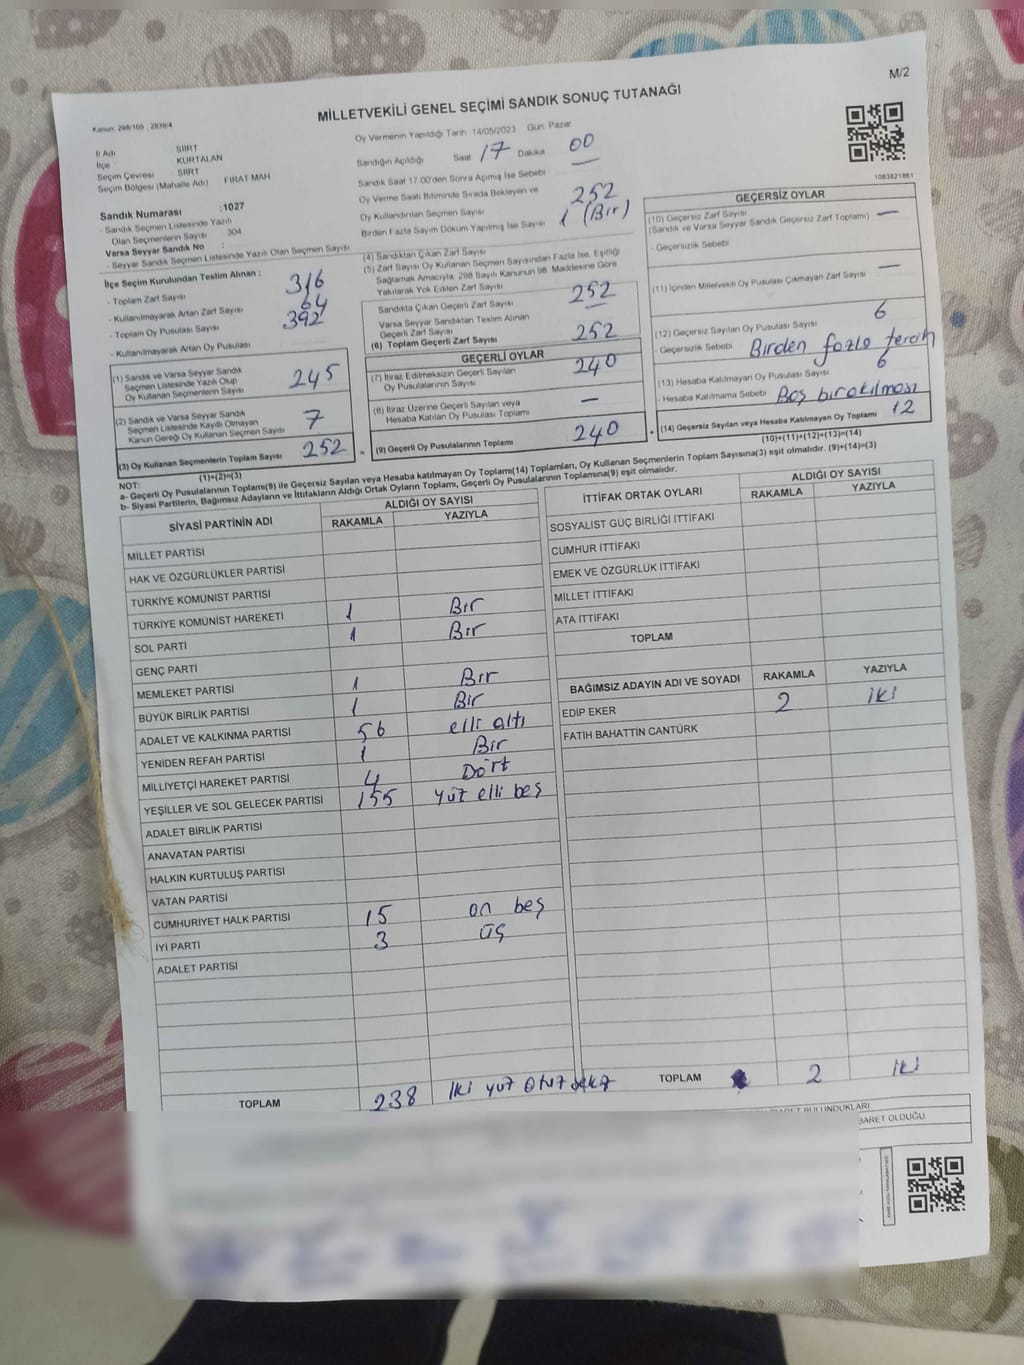 M/2
MİLLETVEKİLİ GENEL SEÇİMİ SANDIK SONUÇ TUTANAĞI
Kanun: 298/105 , 2839/4
Oy Vermenin Yapıldığı Tarih 14/05/2023 Gün: Pazar
İl Adı SİİRT
İlçe KURTALAN
Seçim Çevresi SİİRT
Seçim Bölgesi (Mahalle Adı) FIRAT MAH
Sandık Numarası : 1027
- Sandık Seçmen Listesinde Yazılı
Olan Seçmenlerin Sayısı 304
Varsa Seyyar Sandık No :
- Seyyar Sandık Seçmen Listesinde Yazılı Olan Seçmen Sayısı
İlçe Seçim Kurulundan Teslim Alınan ;
- Toplam Zarf Sayısı 316
- Kullanılmayarak Artan Zarf Sayısı 64
- Toplam Oy Pusulası Sayısı 392
- Kullanılmayarak Artan Oy Pusulası
(1) Sandık ve Varsa Seyyar Sandık
Seçmen Listesinde Yazılı Olup
Oy Kullanan Seçmenlerin Sayısı 245
(2) Sandık ve Varsa Seyyar Sandık
Seçmen Listesinde Kayıtlı Olmayan
Kanun Gereği Oy Kullanan Seçmen Sayısı 7
(3) Oy Kullanan Seçmenlerin Toplam Sayısı 252
(1)+(2)=(3)
Sandığın Açıldığı Saat 17 Dakika 00
Sandık Saat 17.00'den Sonra Açılmış İse Sebebi —
Oy Verme Saati Bitiminde Sırada Bekleyen ve
Oy Kullandırılan Seçmen Sayısı 252
Birden Fazla Sayım Döküm Yapılmış İse Sayısı 1 (Bir)
(4) Sandıktan Çıkan Zarf Sayısı
(5) Zarf Sayısı Oy Kullanan Seçmen Sayısından Fazla İse, Eşitliği
Sağlamak Amacıyla, 298 Sayılı Kanunun 98. Maddesine Göre
Yakılarak Yok Edilen Zarf Sayısı
Sandıkta Çıkan Geçerli Zarf Sayısı 252
Varsa Seyyar Sandıktan Teslim Alınan
Geçerli Zarf Sayısı —
(6) Toplam Geçerli Zarf Sayısı 252
GEÇERLİ OYLAR
(7) İtiraz Edilmeksizin Geçerli Sayılan
Oy Pusulalarının Sayısı 240
(8) İtiraz Üzerine Geçerli Sayılan veya
Hesaba Katılan Oy Pusulası Toplamı —
(9) Geçerli Oy Pusulalarının Toplamı 240
1083821861
GEÇERSİZ OYLAR
(10) Geçersiz Zarf Sayısı
(Sandık ve Varsa Seyyar Sandık Geçersiz Zarf Toplamı) —
- Geçersizlik Sebebi
(11) İçinden Milletvekili Oy Pusulası Çıkmayan Zarf Sayısı —
(12) Geçersiz Sayılan Oy Pusulası Sayısı 6
- Geçersizlik Sebebi Birden fazla tercih
(13) Hesaba Katılmayan Oy Pusulası Sayısı 6
- Hesaba Katılmama Sebebi Boş bırakılması
(14) Geçersiz Sayılan veya Hesaba Katılmayan Oy Toplamı 12
(10)+(11)+(12)+(13)=(14)
NOT:
a- Geçerli Oy Pusulalarının Toplamı(9) ile Geçersiz Sayılan veya Hesaba katılmayan Oy Toplamı(14) Toplamları, Oy Kullanan Seçmenlerin Toplam Sayısına(3) eşit olmalıdır. (9)+(14)=(3)
b- Siyasi Partilerin, Bağımsız Adayların ve İttifakların Aldığı Ortak Oyların Toplamı, Geçerli Oy Pusulalarının Toplamına(9) eşit olmalıdır.
SİYASİ PARTİNİN ADI ALDIĞI OY SAYISI
RAKAMLA YAZIYLA
MİLLET PARTİSİ
HAK VE ÖZGÜRLÜKLER PARTİSİ
TÜRKİYE KOMÜNİST PARTİSİ
TÜRKİYE KOMÜNİST HAREKETİ 1 Bir
SOL PARTİ 1 Bir
GENÇ PARTİ
MEMLEKET PARTİSİ 1 Bir
BÜYÜK BİRLİK PARTİSİ 1 Bir
ADALET VE KALKINMA PARTİSİ 56 elli altı
YENİDEN REFAH PARTİSİ 1 Bir
MİLLİYETÇİ HAREKET PARTİSİ 4 Dört
YEŞİLLER VE SOL GELECEK PARTİSİ 155 yüz elli beş
ADALET BİRLİK PARTİSİ
ANAVATAN PARTİSİ
HALKIN KURTULUŞ PARTİSİ
VATAN PARTİSİ
CUMHURİYET HALK PARTİSİ 15 on beş
İYİ PARTİ 3 üç
ADALET PARTİSİ
TOPLAM 238 iki yüz otuz sekiz
İTTİFAK ORTAK OYLARI ALDIĞI OY SAYISI
RAKAMLA YAZIYLA
SOSYALİST GÜÇ BİRLİĞİ İTTİFAKI
CUMHUR İTTİFAKI
EMEK VE ÖZGÜRLÜK İTTİFAKI
MİLLET İTTİFAKI
ATA İTTİFAKI
TOPLAM
BAĞIMSIZ ADAYIN ADI VE SOYADI RAKAMLA YAZIYLA
EDİP EKER 2 iki
FATİH BAHATTİN CANTÜRK
TOPLAM 2 iki
BULUNDUKLARI
BARET OLDUĞU